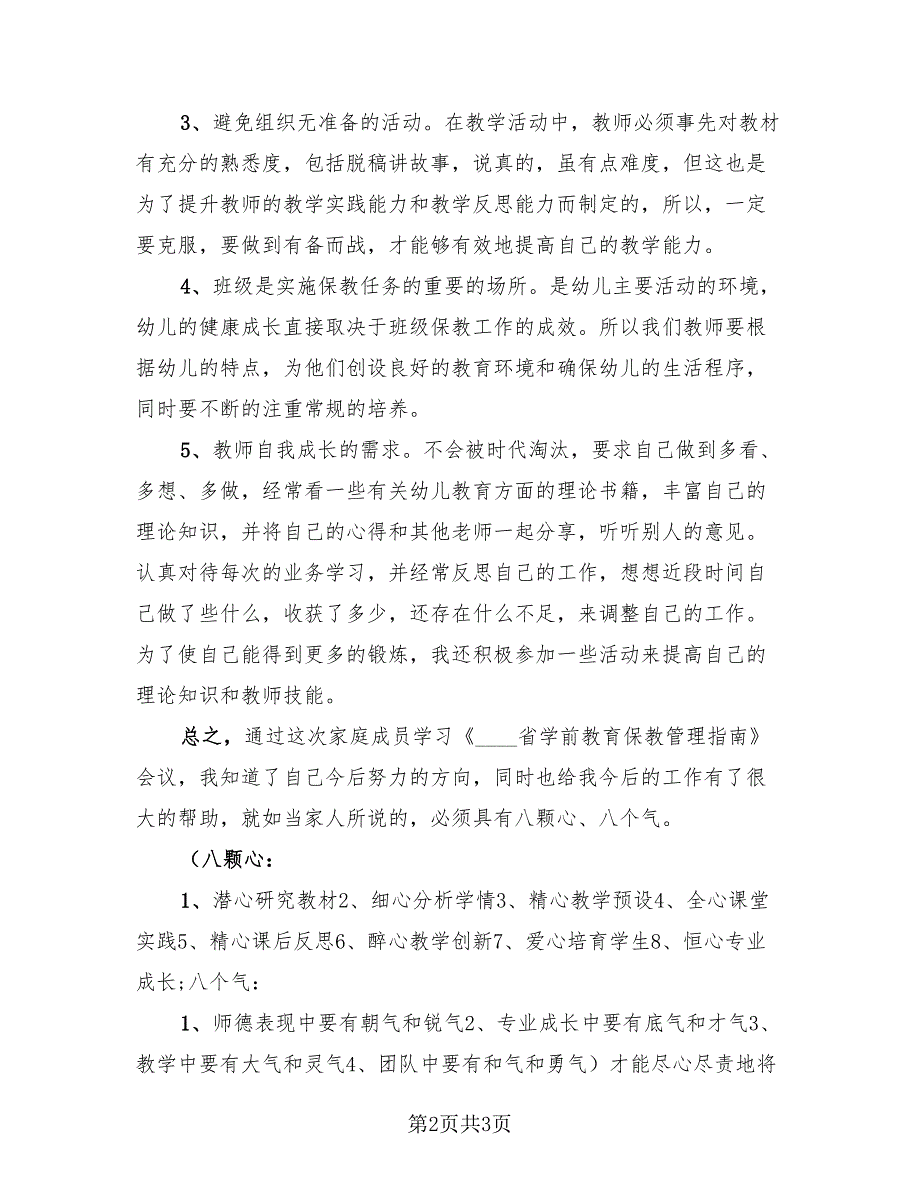 3、避免组织无准备的活动。在教学活动中，教师必须事先对教材
有充分的熟悉度，包括脱稿讲故事，说真的，虽有点难度，但这也是
为了提升教师的教学实践能力和教学反思能力而制定的，所以，一定
要克服，要做到有备而战，才能够有效地提高自己的教学能力。
4、班级是实施保教任务的重要的场所。是幼儿主要活动的环境，
幼儿的健康成长直接取决于班级保教工作的成效。所以我们教师要根
据幼儿的特点，为他们创设良好的教育环境和确保幼儿的生活程序，
同时要不断的注重常规的培养。
5、教师自我成长的需求。不会被时代淘汰，要求自己做到多看、
多想、多做，经常看一些有关幼儿教育方面的理论书籍，丰富自己的
理论知识，并将自己的心得和其他老师一起分享，听听别人的意见。
认真对待每次的业务学习，并经常反思自己的工作，想想近段时间自
己做了些什么，收获了多少，还存在什么不足，来调整自己的工作。
为了使自己能得到更多的锻炼，我还积极参加一些活动来提高自己的
理论知识和教师技能。
总之，通过这次家庭成员学习《____省学前教育保教管理指南》
会议，我知道了自己今后努力的方向，同时也给我今后的工作有了很
大的帮助，就如当家人所说的，必须具有八颗心、八个气。
（八颗心：
1、潜心研究教材2、细心分析学情3、精心教学预设4、全心课堂
实践5、精心课后反思6、醉心教学创新7、爱心培育学生8、恒心专业
成长;八个气：
1、师德表现中要有朝气和锐气2、专业成长中要有底气和才气3、
教学中要有大气和灵气4、团队中要有和气和勇气）才能尽心尽责地将
第2页共3页